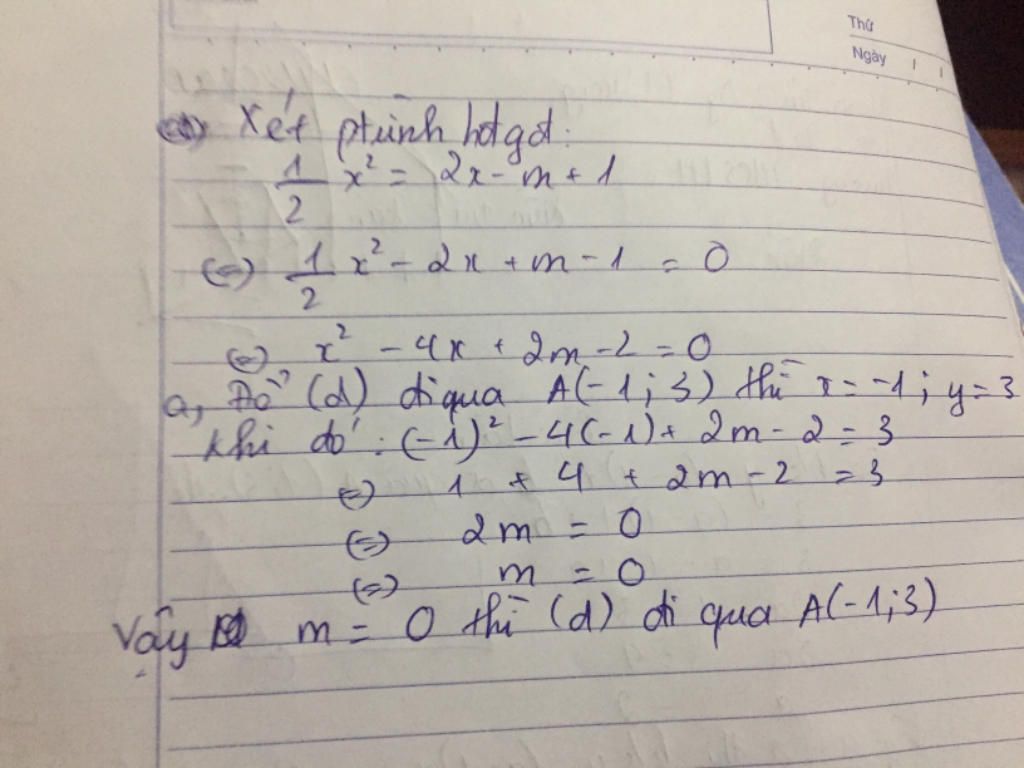 Thứ
Ngày
Xét ptrình hđgđ:
1/2 x² = 2x - m + 1
(=) 1/2 x² - 2x + m - 1 = 0
(=) x² - 4x + 2m - 2 = 0
a, Để (d) đi qua A(-1; 3) thì x = -1; y = 3
Khi đó: (-1)² - 4(-1) + 2m - 2 = 3
(=) 1 + 4 + 2m - 2 = 3
(=) 2m = 0
(=) m = 0
Vậy m = 0 thì (d) đi qua A(-1; 3)